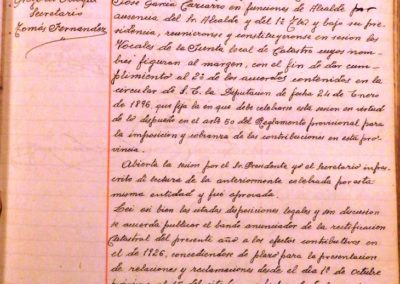 Secretario
Tomás Fernandez
José García Carcarro en funciones de Alcalde por
ausencia del Sr. Alcalde y del 1º y bajo su pre-
sidencia, reunieronse y constituyeronse en sesion los
Vocales de la Junta local de Catastro cuyos nom-
bres figuran al margen, con el fin de dar cum-
plimiento al 2º de los acuerdos contenidos en la
circular de S. E. la Diputacion de fecha 24 de Enero
de 1896, que fija la en que debe celebrarse esta sesion en virtud
de lo dispuesto en el artº 50 del Reglamento provisional para
la imposicion y cobranza de las contribuciones en esta pro-
vincia.
Abierta la sesion por el Sr. Presidente, yo el Secretario infras-
crito dí lectura de la anteriormente celebrada por esta
misma entidad y fué aprobada.
Leí asi bien las citadas disposiciones legales y sin discusion
se acuerda publicar el bando anunciador de la rectificacion
Catastral del presente año a los efectos contributivos en
el de 1926, concediendose de plazo para la presentacion
de relaciones y reclamaciones desde el dia 1º de Octubre